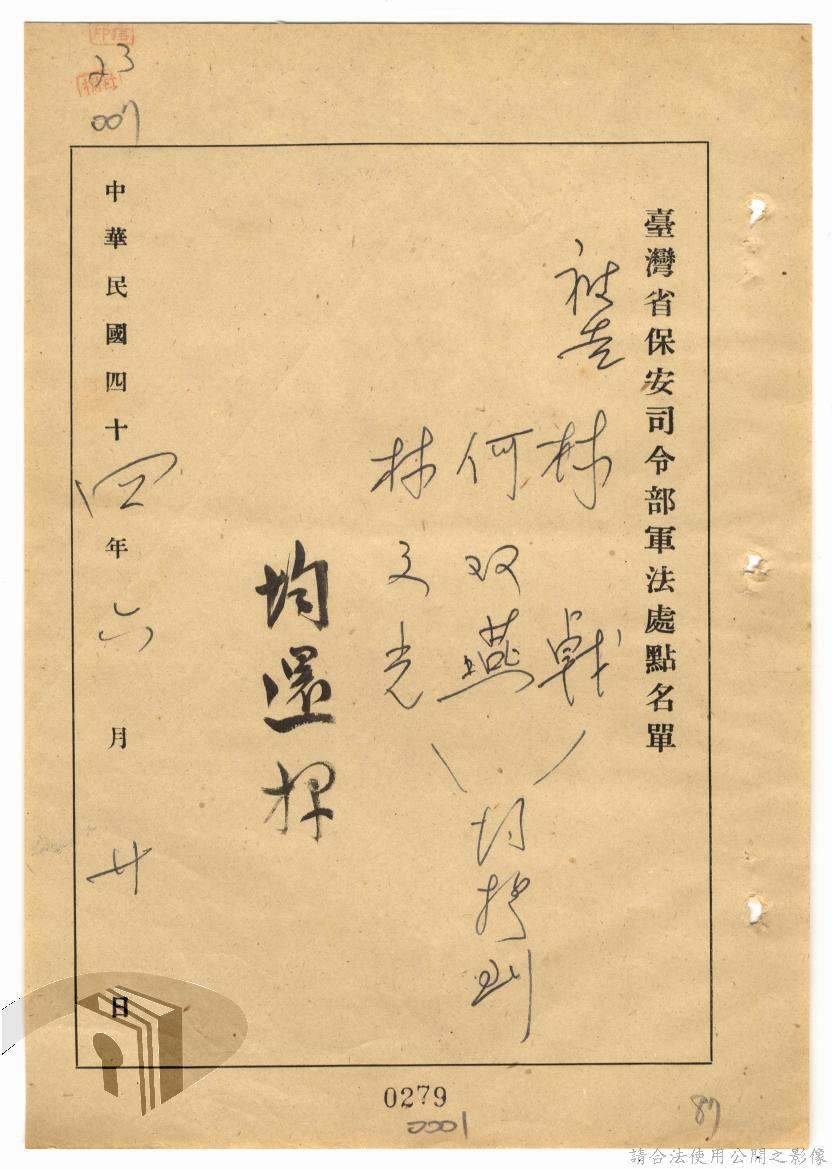 臺灣省保安司令部軍法處點名單
被告
林
何双燕
林文光
均提到
均還押
中華民國四十四年六月廿日
23
007
0279
1000
87
請合法使用公開之影像